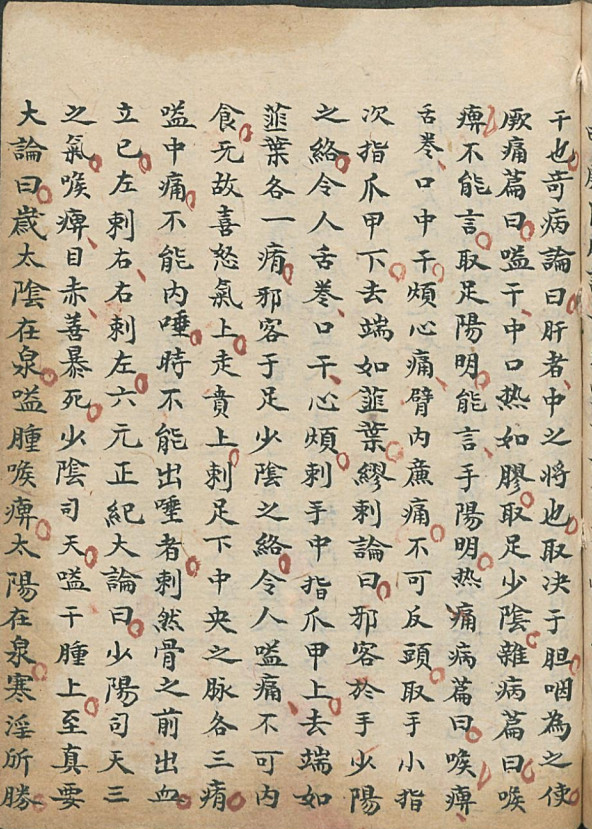 干也奇病論曰肝者中之将也取决于胆咽為之使
厥痛篇曰嗌干中口热如膠取足少陰雜病篇曰喉
痺不能言取足陽明能言手陽明热痛病篇曰喉痺
舌卷口中干煩心痛臂内廉痛不可及頭取手小指
次指爪甲下去端如韮葉繆刺論曰邪客於手少陽
之絡令人舌卷口干心煩刺手中指爪甲上去端如
韮葉各一痏邪客于足少陰之絡令人嗌痛不可内
食无故喜怒氣上走賁上刺足下中央之脉各三痏
嗌中痛不能内唾時不能出唾者刺然骨之前出血
立已左刺右右刺左六元正紀大論曰少陽司天三
之氣喉痺目赤善暴死少陰司天嗌干腫上至真要
大論曰歲太陰在泉嗌腫喉痺太陽在泉寒淫所勝